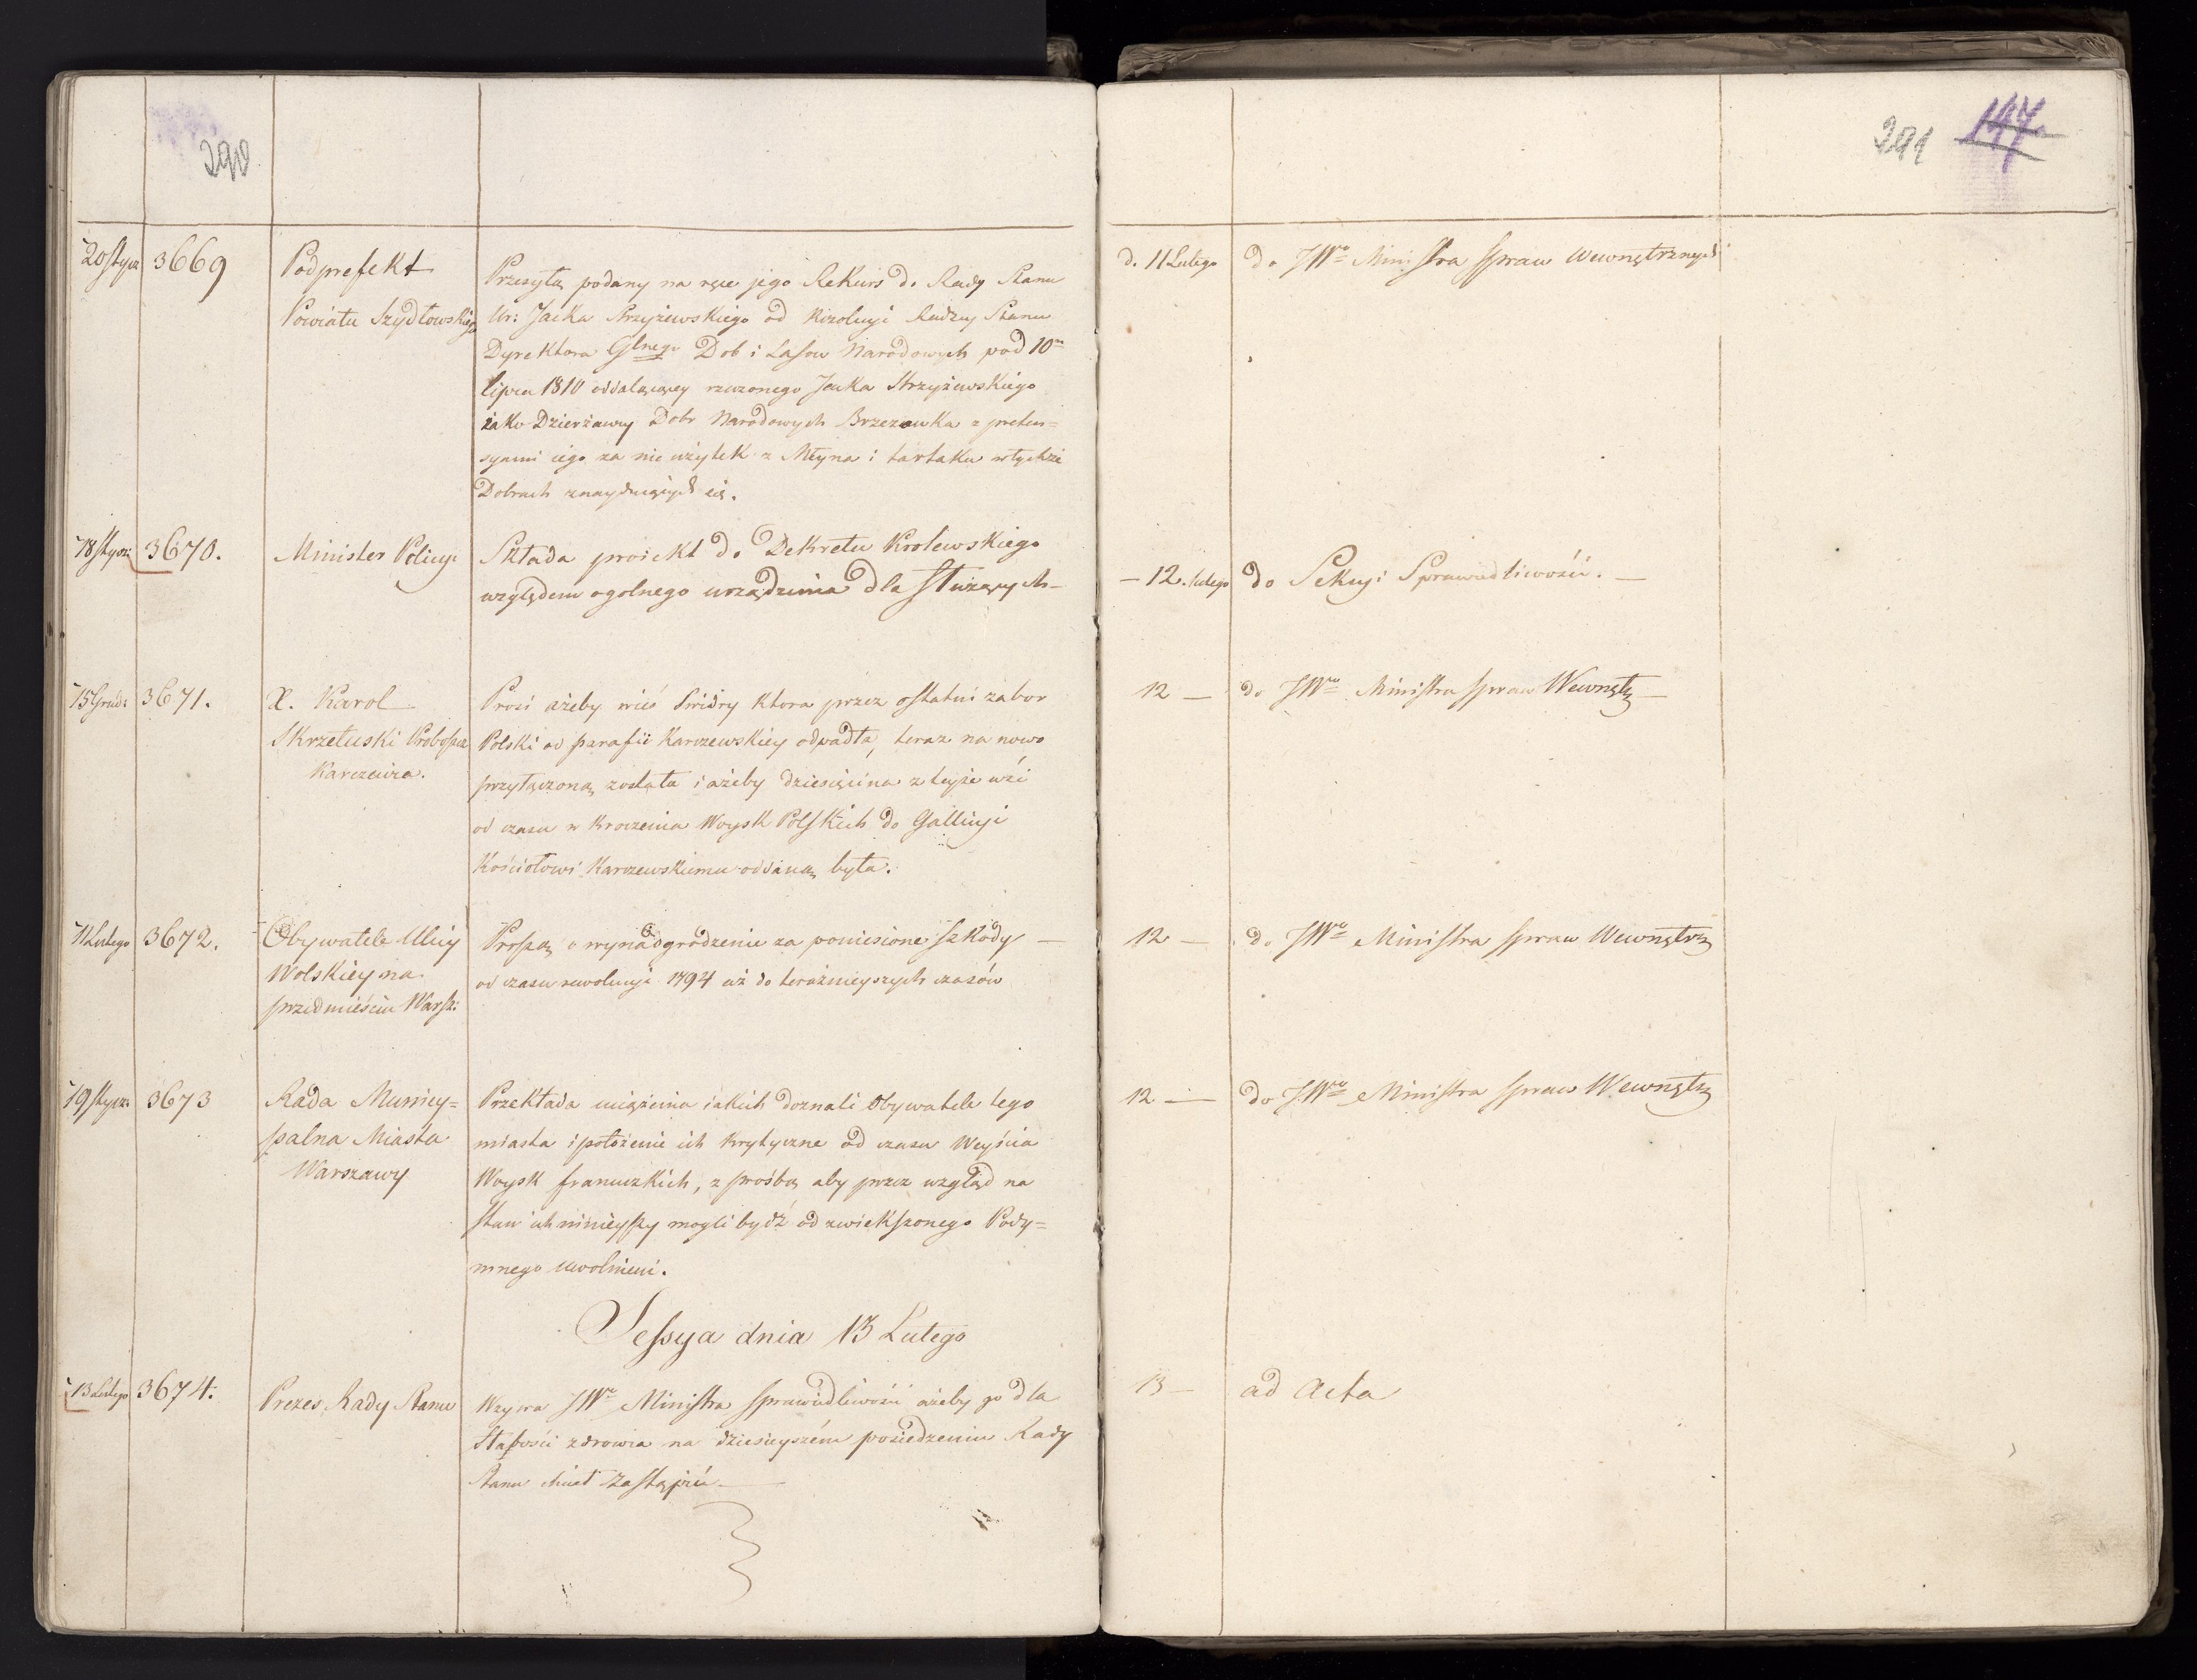 290
291 147
20 Stycz 3669 Podprefekt
Powiatu Szydłowskiego
Przesyła podany na ręce jego Rekurs do Rady Stanu
Ur: Jacka Strzyżewskiego od Rezolucyi Radzcy Stanu
Dyrektora Glnego Dób i Lasow Narodowych pod 10m
lipca 1810 oddalaiącey rzeczonego Jacka Strzyżewskiego
iako Dzierżawcy Dobr Narodowych Brzezowka z preten=
syami iego za nie użytek z Młyna i tartaku w tychże
Dobrach znayduiących się.
d. 11 Lutego do JWo Ministra Spraw Wewnętrznych
18 Stycz: 3670. Minister Policyi
Składa proiekt do Dekretu Krolewskiego
względem ogolnego urządzenia dla służących
– 12. lutego do Sekcyi Sprawiedliwości. –
15 Grud: 3671. X. Karol
Skrzetuski Proboszcz
Karczewia.
Prosi ażeby wieś Swidry ktora przez ostatni zabor
Polski od parafii Karczewskiey odpadła, teraz na nowo
przyłączoną została i ażeby dziesięcina z teyże wsi
od czasu wkroczenia Woysk Polskich do Gallicyi
Kościołowi Karczewskiemu oddaną była.
12 – do JWo Ministra Spraw Wewnętrz –
11 Lutego 3672. Obywatele Ulicy
Wolskiey na
przedmieściu Warsz:
Proszą o wynadgrodzenie za poniesione szkody –
od czasu rewolucyi 1794 aż do teraźnieyszych czasów
12 – do JWo Ministra Spraw Wewnętrz
19 Stycz: 3673 Rada Municy=
palna Miasta
Warszawy
Przekłada uciążenia iakich doznali Obywatele tego
miasta i położenie ich krytyczne od czasu Weyścia
Woysk francuzkich, z prośbą aby przez wzgląd na
stan ich ninieyszy mogli bydź od zwiekszonego Pody=
mnego uwolnieni.
12 – do JWo Ministra Spraw Wewnętrz
Sessya dnia 13 Lutego
13 Lutego 3674. Prezes Rady Stanu
Wzywa JWo Ministra Sprawiedliwości ażeby go dla
słabości zdrowia na dzisieyszém posiedzeniu Rady
Stanu chciał zastąpić –
13 – ad Acta